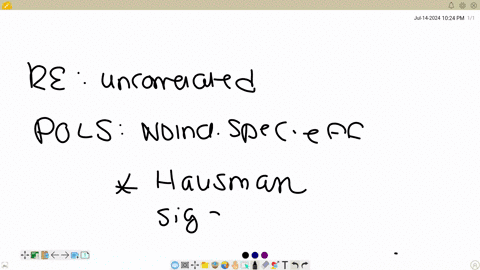 Jul-14-2024 10:24 PM 1/1
RE: uncorrelated
POLS: No ind. spec. eff
* Hausman
sig -